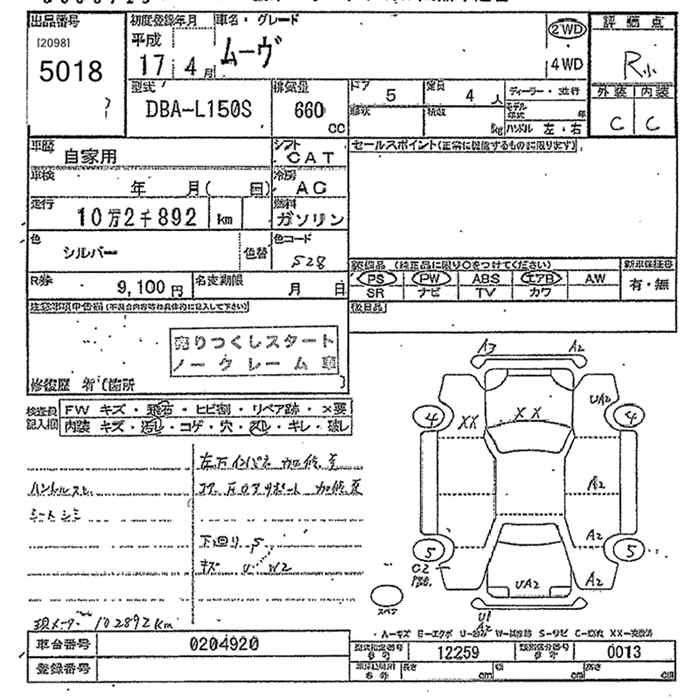 出品番号
[2098]
5018
初度登録年月
平成
17 4月
車名・グレード
ムーヴ
2WD
4WD
評価点
R小
外装 内装
C C
型式
DBA-L150S
排気量
660
CC
ドア
5
定員
4 人
形状
積載
kg
ディーラー・並行
モデル
年式 年
ハンドル 左・右
車歴
自家用
シフト
CAT
車検
年 月( 回)
冷房
AC
走行
10万2千892 km
燃料
ガソリン
色
シルバー
色替
色コード
S28
R券
9,100円
名変期限
月 日
セールスポイント(正常に機能するものに限ります)
装備品 (純正品に限り○をつけてください)
PS PW ABS エアB AW
SR ナビ TV カワ
新車保証書
有・無
後日品
注意事項申告欄(不具合内容等は具体的に記入して下さい)
売りつくしスタート
ノークレーム車
修復歴 有(箇所 )
検査員
記入欄
FW キズ・飛石・ヒビ割・リペア跡・×要
内装 キズ・汚れ・コゲ・穴・スレ・キレ・破し
左右インパネ 加修歴
ハンドルスレ
コア 右ロアサポート 加修歴
シートシミ
下回り S
キズ U W2
現メーター 102892km
A3 A2
UA2
4 XX XX 4
A2
A2
5 5
C2
UA2 A2
スペア
U1
A2
車台番号
0204920
登録番号
型式指定番号
12259
類別区分番号
0013
長さ cm
幅 cm
高さ cm